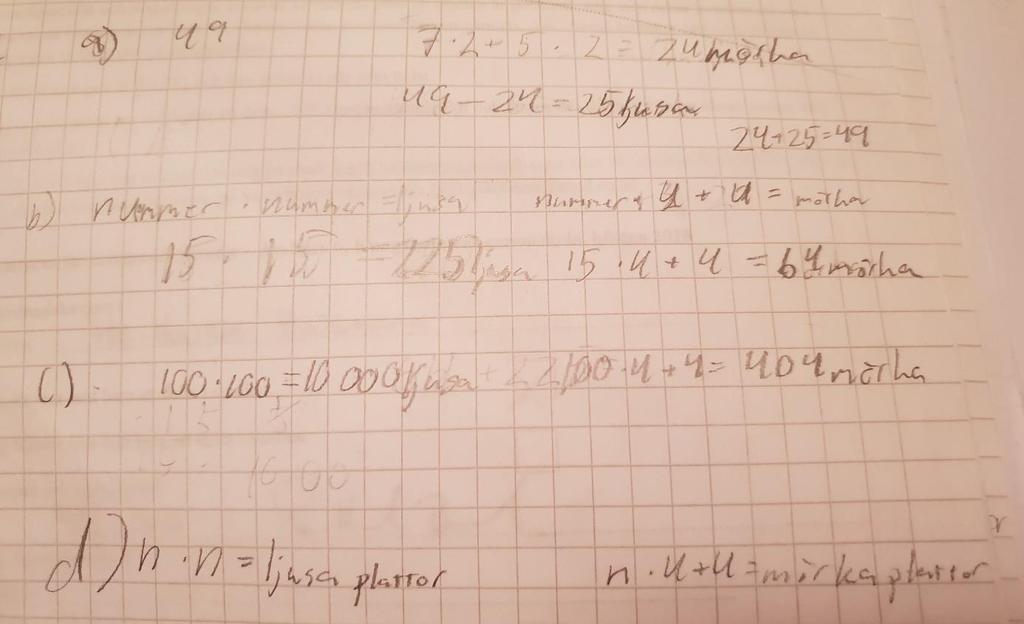 a) 49 7·2+5·2=24 mörka
49-24=25 ljusa
24+25=49
b) nummer · nummer = ljusa nummer · 4 + 4 = mörka
15 · 15 = 225 ljusa 15 · 4 + 4 = 64 mörka
c) 100·100=10 000 ljusa 100·4+4=404 mörka
1000
d) n · n = ljusa plattor n · 4+4 = mörka plattor